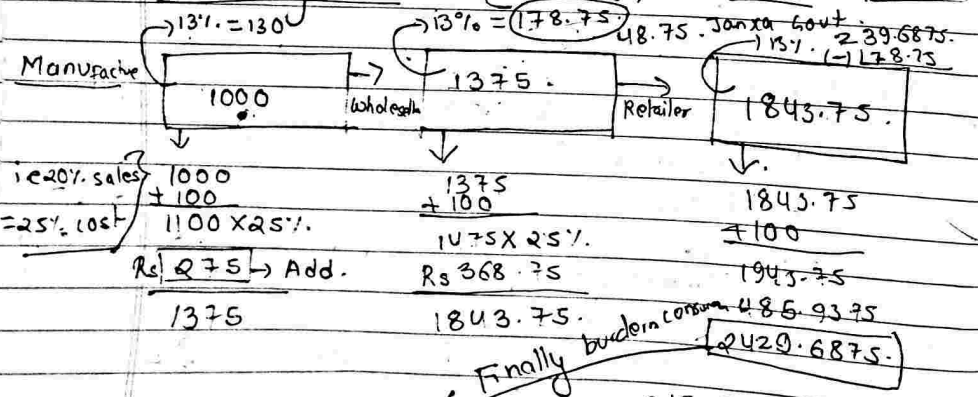 13% = 130
13% = 178.75
48.75. Janxa Govt.
13%. 239.6875.
(-) 178.75
Manufacture
1000
Wholeseller
1375.
Retailer
1843.75.
i.e 20% sales
= 25% cost
1000
+ 100
1100 X 25%.
Rs 275 → Add.
1375
1375
+ 100
1475 X 25%.
Rs 368.75
1843.75.
1843.75
+ 100
1943.75
485.9375
2429.6875.
Finally burden consumer